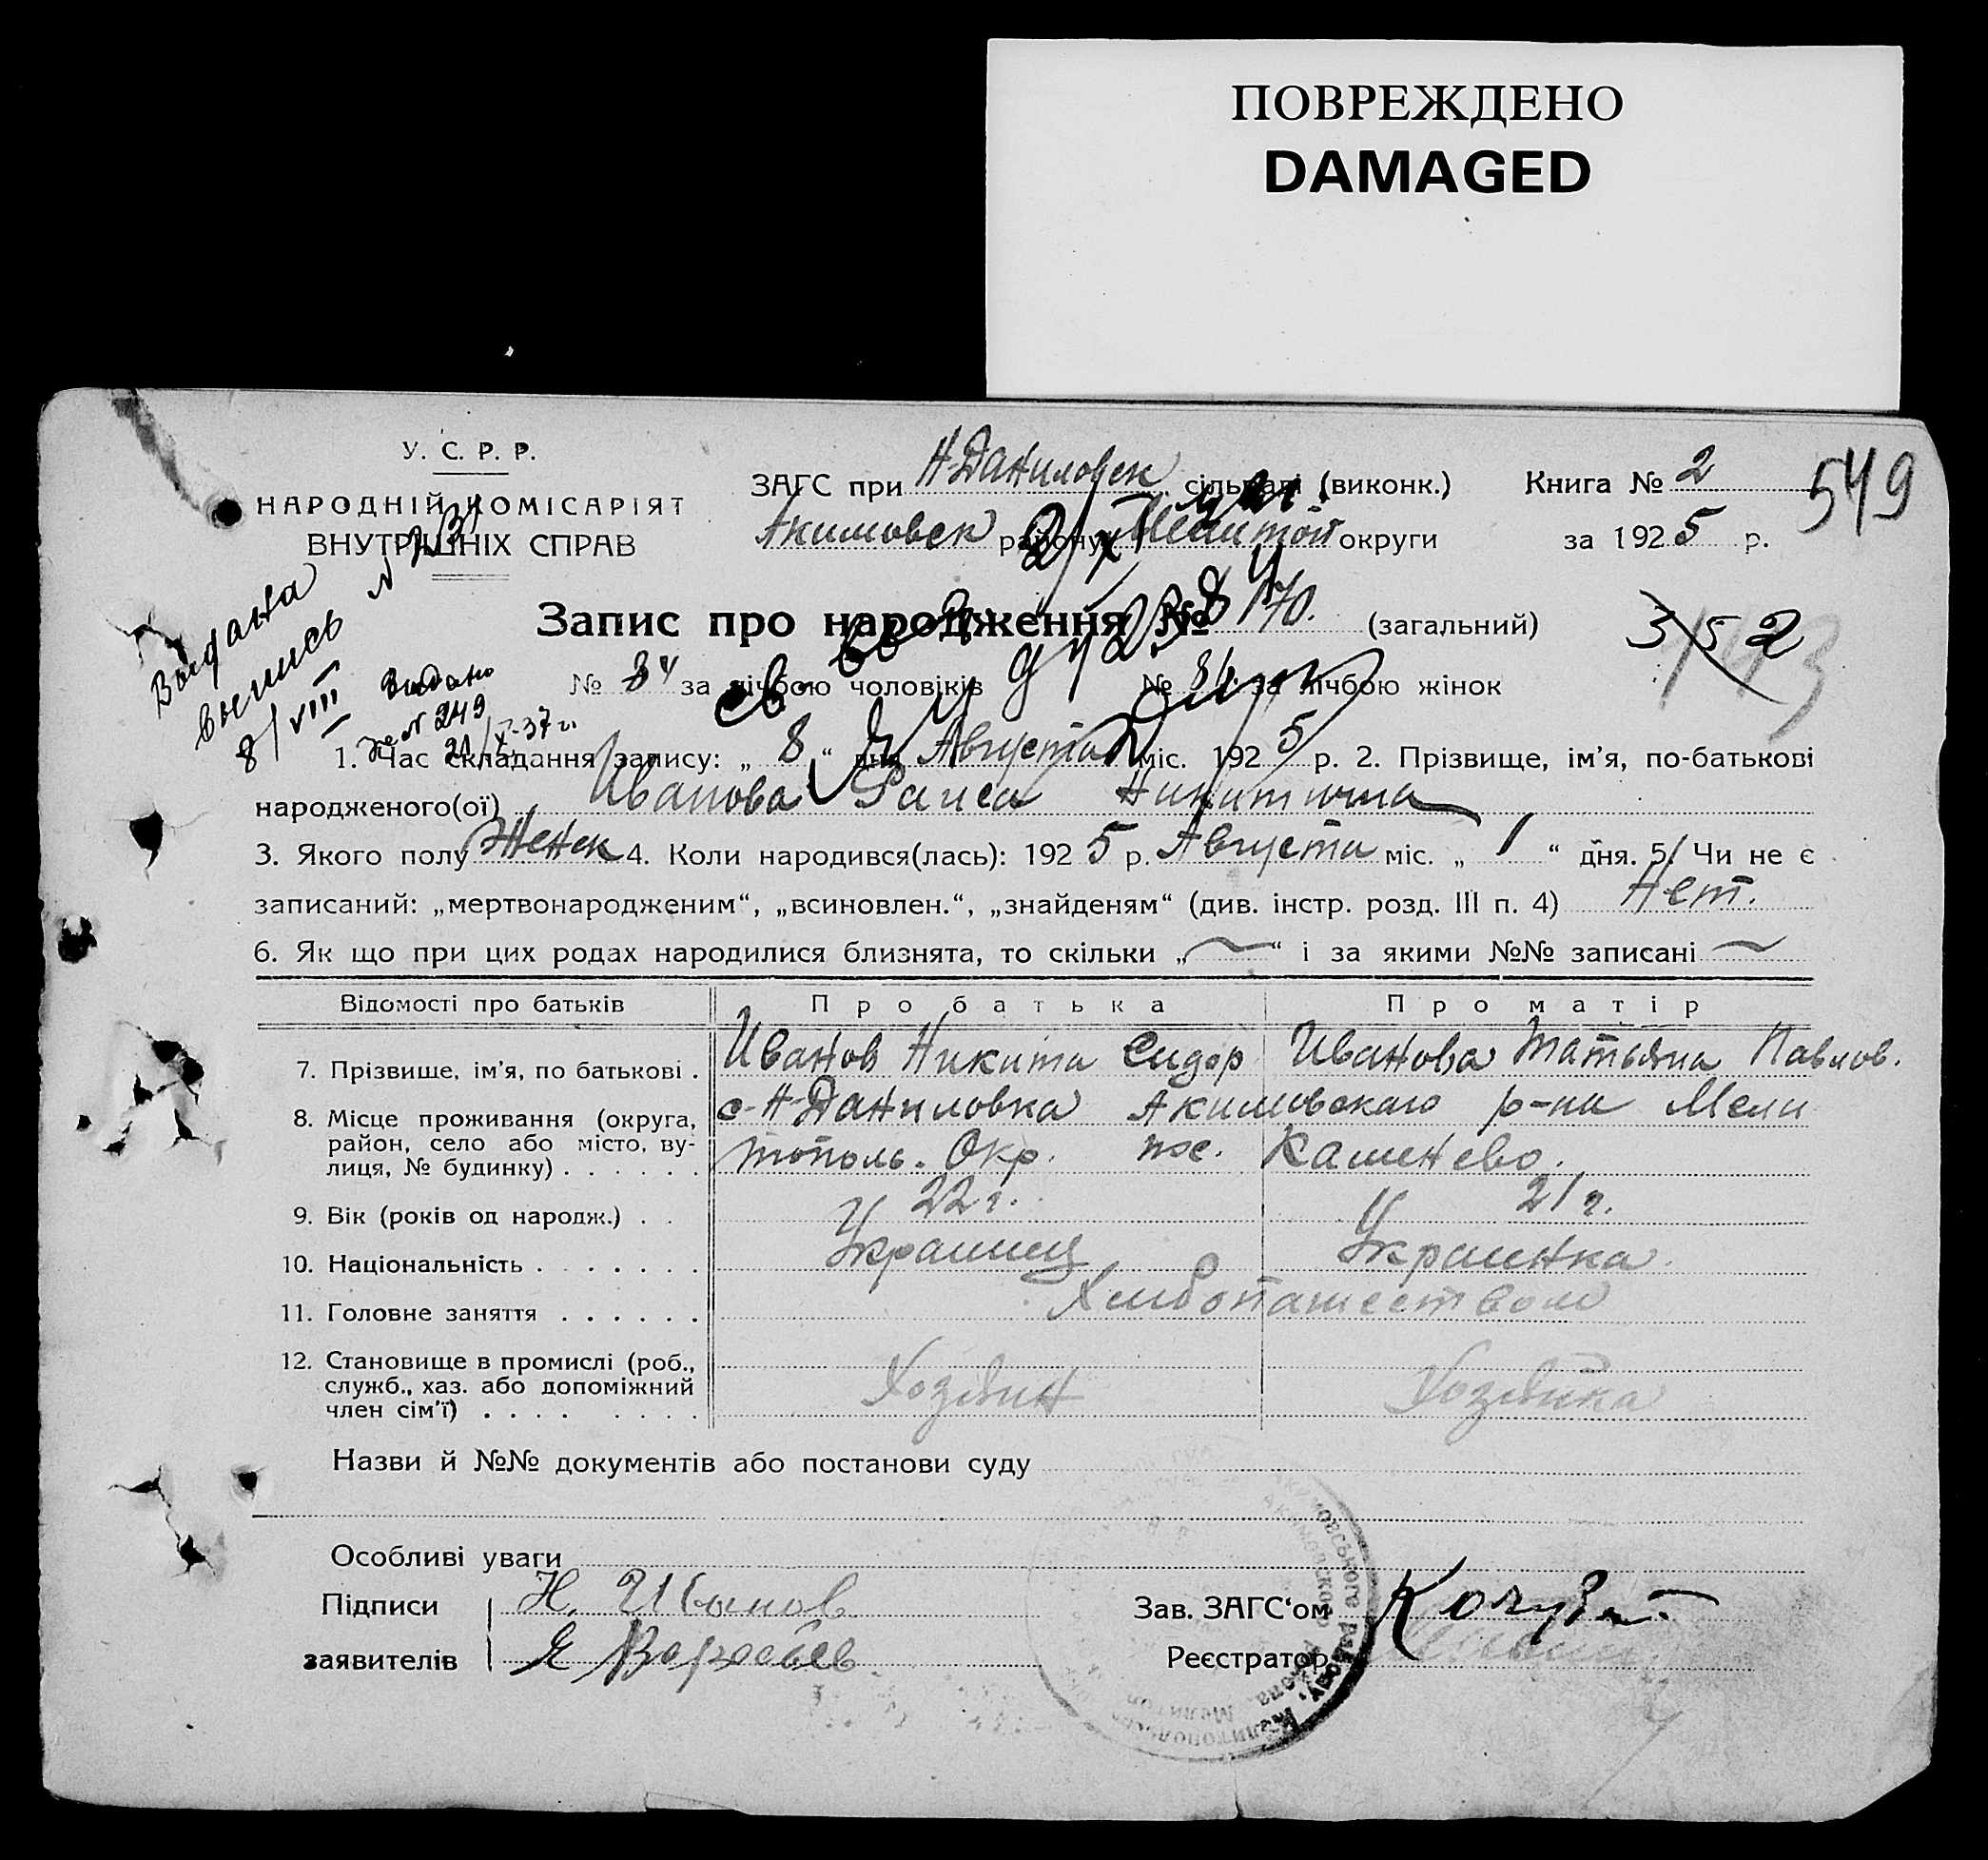 ПОВРЕЖДЕНО
DAMAGED
У. С. Р. Р.
НАРОДНІЙ КОМІСАРІЯТ
ВНУТРІШНІХ СПРАВ
ЗАГС при Н-Даниловск сільраді (виконк.) Книга № 2
549
Акимовск району Мелитоп округи за 1925 р.
Запис про народження № 170. (загальний)
352
143
№ 84 за лічбою чоловіків № 86 за лічбою жінок
Выдана
выпись №
8/VIII
Видано
№ 249
21/X-37 г.
1. Час складання запису: „8“ дня Августа міс. 1925 р. 2. Прізвище, ім'я, по-батькові
народженого(ої) Иванова Раиса Никитична
3. Якого полу Женск 4. Коли народився(лась): 1925 р. Августа міс. „1“ дня. 5. Чи не є
записаний: „мертвонародженим“, „всиновлен.“, „знайденям“ (див. інстр. розд. III п. 4) Нет.
6. Як що при цих родах народилися близнята, то скільки „ “ і за якими №№ записані
Відомості про батьків Про батька Про матір
7. Прізвище, ім'я, по батькові . Иванов Никита Сидор Иванова Татьяна Павлов.
8. Місце проживання (округа, район, село або місто, вулиця, № будинку) . . . . . . с-Н-Даниловка Акимовского р-на Мели
тополь. Окр. пос. Каменево.
9. Вік (років од народж.) . . 22 г. 21 г.
10. Національність . . . . . . . Украинец Украинка.
11. Головне заняття . . . . . . Хлебопашеством
12. Становище в промислі (роб.,
служб., хаз. або допоміжний
член сім'ї) . . . . . . . . Хозяин Хозяйка
Назви й №№ документів або постанови суду
Особливі уваги
Підписи Н. Иванов Зав. ЗАГС'ом
заявителів Реєстратор